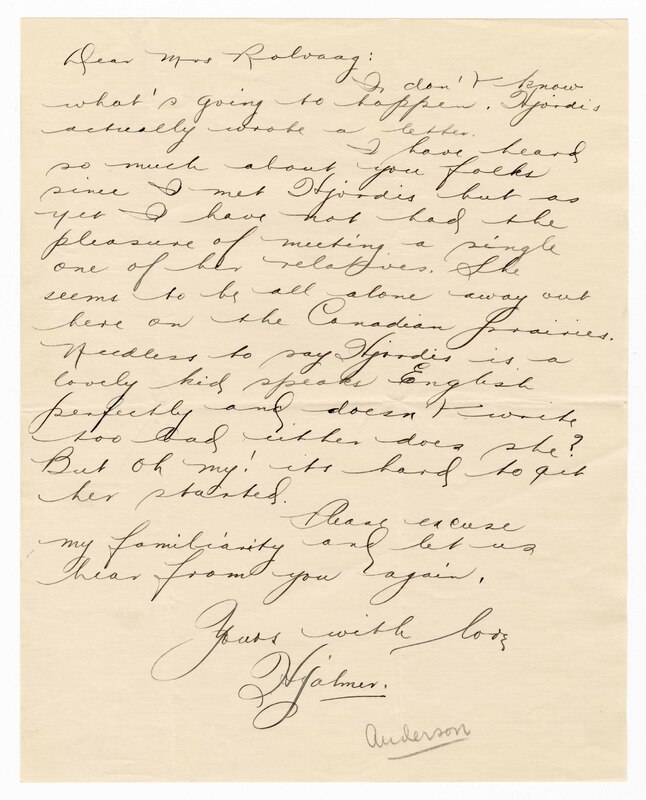 Dear Mrs Rolvaag:
I don't know
what's going to happen. Hjordis
actually wrote a letter.
I have heard
so much about you folks
since I met Hjordis but as
yet I have not had the
pleasure of meeting a single
one of her relatives. She
seems to be all alone away out
here on the Canadian prairies.
Needless to say Hjordis is a
lovely kid speaks English
perfectly and doesn't write
too bad either does she?
But Oh my! its hard to get
her started.
Please excuse
my familiarity and let us
hear from you again.
Yours with love
Hjalmer.
Anderson